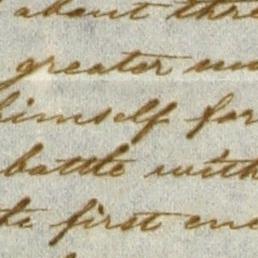 about thre
greater
himself for
battle with
first